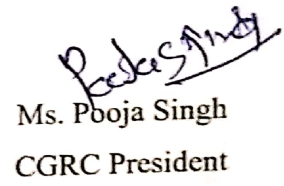 Pooja Singh
Ms. Pooja Singh
CGRC President